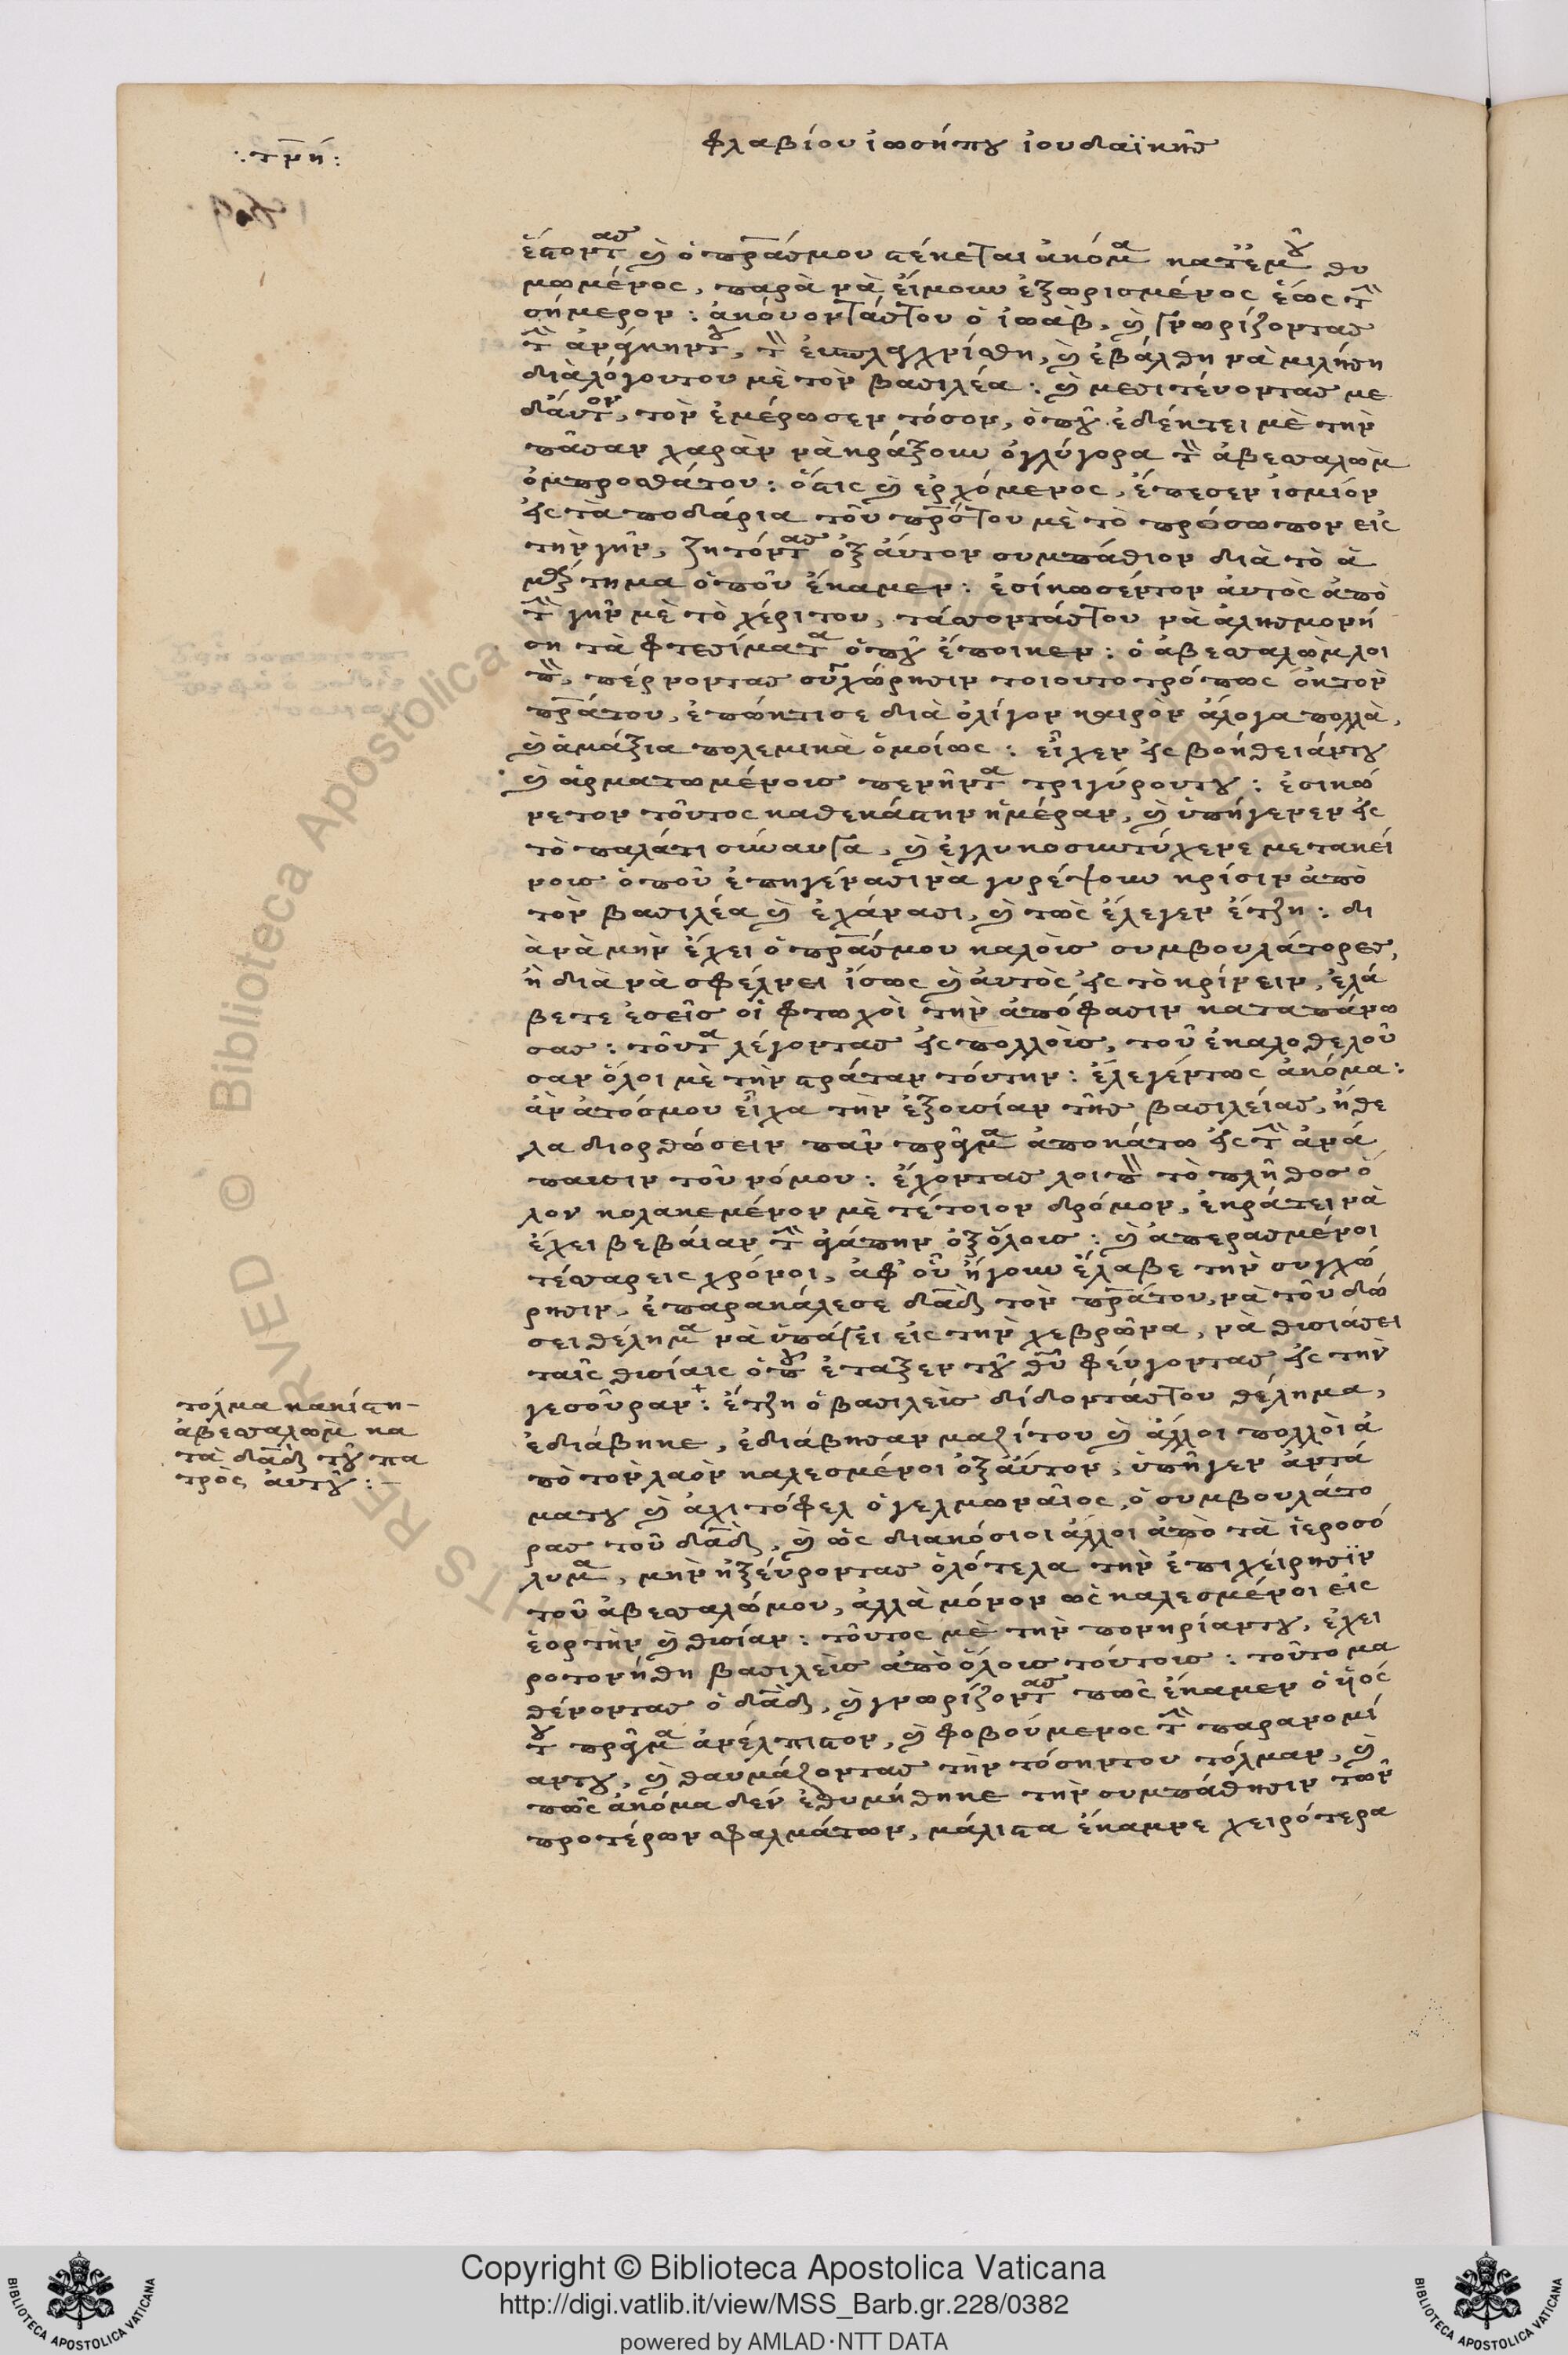 ·:τρη:
φλαβίου ἰωσήπου ἰουδαϊκῆς
ἔστοντας καὶ ὁ πατέρας μου στέκεται ἀκόμα κατ' ἐμοῦ θυ
μωμένος, παρὰ νὰ εἶμουν ἐξωρισμένος ἕως τὴν
σήμερον: ἀκούοντάς του ὁ ἰωάβ, καὶ γνωρίζοντας
τὴν ἀνάγκην του, τὸν καὶ ἐβάλθη νὰ μιλήση
διὰ λόγουτου μὲ τὸν βασιλέα: καὶ μεσιτέυοντας με
δἀυτον, τὸν ἐμέρωσεν τόσον, ὁποῦ ἐδέητει μὲ τὴν
πᾶσαν χαρὰν νὰ κράξουν ὀγλύγορα τὸν ἀβεσσαλὼμ
ὀμπροσθάτου: ὅστις καὶ ἐρχόμενος, ἔπεσεν
εἰς τὰ ποδάρια τοῦ πατρός του μὲ τὸ πρόσωπον εἰς
τὴν γῆν, ζητόντας ὀξ ἀύτον συμπάθιον διὰ τὸ ἁ
μάρτημα ὁποῦ ἔκαμεν: ἐσίκωσέντον ἀυτὸς ἀπὸ
τὴν γῆν μὲ τὸ χέριτου, τάσσοντάς του νὰ ἀλησμονή
ση τὰ φτεσίματα ὁποῦ ἔποικεν: ὁ ἀβεσσαλὼμ λοι
πὸν, πέρνοντας συγχώρησιν τοιουτοτρόπως ὀκ τὸν
πατέρα του, ἐπώκτισε διὰ ὀλίγον καιρὸν ἄλογα πολλὰ,
καὶ ἀμάξια πολεμικὰ ὁμοίως: εἶχεν εἰς βοήθειάντου
καὶ ἀρματωμένους πενῆντα τριγύρουτου: ἐσικώ
νετον τοῦτος καθεκάστην ἡμέραν, καὶ ὑπήγενεν εἰς
τὸ παλάτι σύναυγα, καὶ ἐγλυκοσυντύχενε μετακεί
νους ὁποῦ ἐπηγένασι νὰ γυρέψουν κρίσιν ἀπὸ
τὸν βασιλέα καὶ ἐχάνασι, καὶ τῶς ἔλεγεν ἔτζη: δι
ὰ νὰ μὴν ἔχει ὁ πατέρας μου καλοὺς συμβουλάτορες,
ἢ διὰ νὰ σφέλνει ἴσως καὶ ἀυτὸς εἰς τὸ κρίνειν, ἐλά
βετε ἐσεῖς οἱ φτωχοὶ τὴν ἀπόφασιν καταπάνω
σας: τοῦτα λέγοντας εἰς πολλοὺς, τοῦ ἐκαλοθελοῦ
σαν ὅλοι μὲ τὴν στράταν τόυτην: ἔλεγέντως ἀκόμα:
ἂν ἀτόσμου εἶχα τὴν ἐξουσίαν τῆς βασιλείας, ἤθε
λα διορθώσειν πᾶν πρᾶγμα ἀποκάτω εἰς τὴν ἀνά
παυσιν τοῦ νόμου: ἔχοντας λοιπὸν τὸ πλῆθος ὅ
λον κολακεμένον μὲ τέτοιον δρόμον, ἐκράτει νὰ
ἔχει βεβάιαν τὴν ἀγάπην ὀξόλους: καὶ ἀπερασμένοι
τέσσαρεις χρόνοι, ἀφ' οὗ ἤγουν ἔλαβε τὴν συγχώ
ρησιν, ἐπαρακάλεσε δαβὶδ τὸν πατέρα του, νὰ τοῦ δώ
σει θέλημα νὰ ὑπάγει εἰς τὴν χεβρῶνα, νὰ θυσιάσει
ταῖς θυσίαις ὁποῦ ἔταξεν τοῦ θεοῦ φέυγοντας εἰς τὴν
γεσοῦραν: ἔτζη ὁ βασιλεὺς δίδοντάς του θέλημα,
ἐδιάβηκε, ἐδιάβησαν μαζίτου καὶ ἄλλοι πολλοὶ ἀ
πὸ τὸν λαὸν καλεσμένοι ὀξ ἄυτον, ὑπῆγεν ἀντά
ματου καὶ ἀχιτόφελ ὁ γελμωναῖος, ὁ συμβουλάτο
ρας τοῦ δαβὶδ, καὶ ὡς διακόσιοι ἄλλοι ἀπὸ τὰ ἱεροσό
λυμα, μὴν ἠξέυροντας ὁλότελα τὴν ἐπιχείρησϊν
τοῦ ἀβεσσαλώμου, ἀλλὰ μόνον ὡς καλεσμένοι εἰς
ἑορτὴν καὶ θυσίαν: τοῦτος μὲ τὴν πονηρίαντου, ἔχει
ροτονήθη βασιλεὺς ἀπὸ ὅλους τόυτους: τοῦτο μα
θένοντας ὁ δαβὶδ, καὶ γνωρίζοντας πῶς ἔκαμεν ὁ ὑιός
του πρᾶγμα ἀνέλπιστον, καὶ φοβούμενος τὴν παρανομί
αντου, καὶ θαυμάζοντας τὴν τόσηντου τόλμαν, καὶ
πῶς ἀκόμα δεν ἐθυμήθηκε τὴν συμπάθησιν τῶν
προτέρων σφαλμάτων, μάλιστα ἔκαμνε χειρότερα
τόλμα κακίστη
ἀβεσσαλὼμ κα
τὰ δαβὶδ τοῦ πα
τρὸς ἀυτοῦ:
Copyright © Biblioteca Apostolica Vaticana
http://digi.vatlib.it/view/MSS_Barb.gr.228/0382
powered by AMLAD·NTT DATA